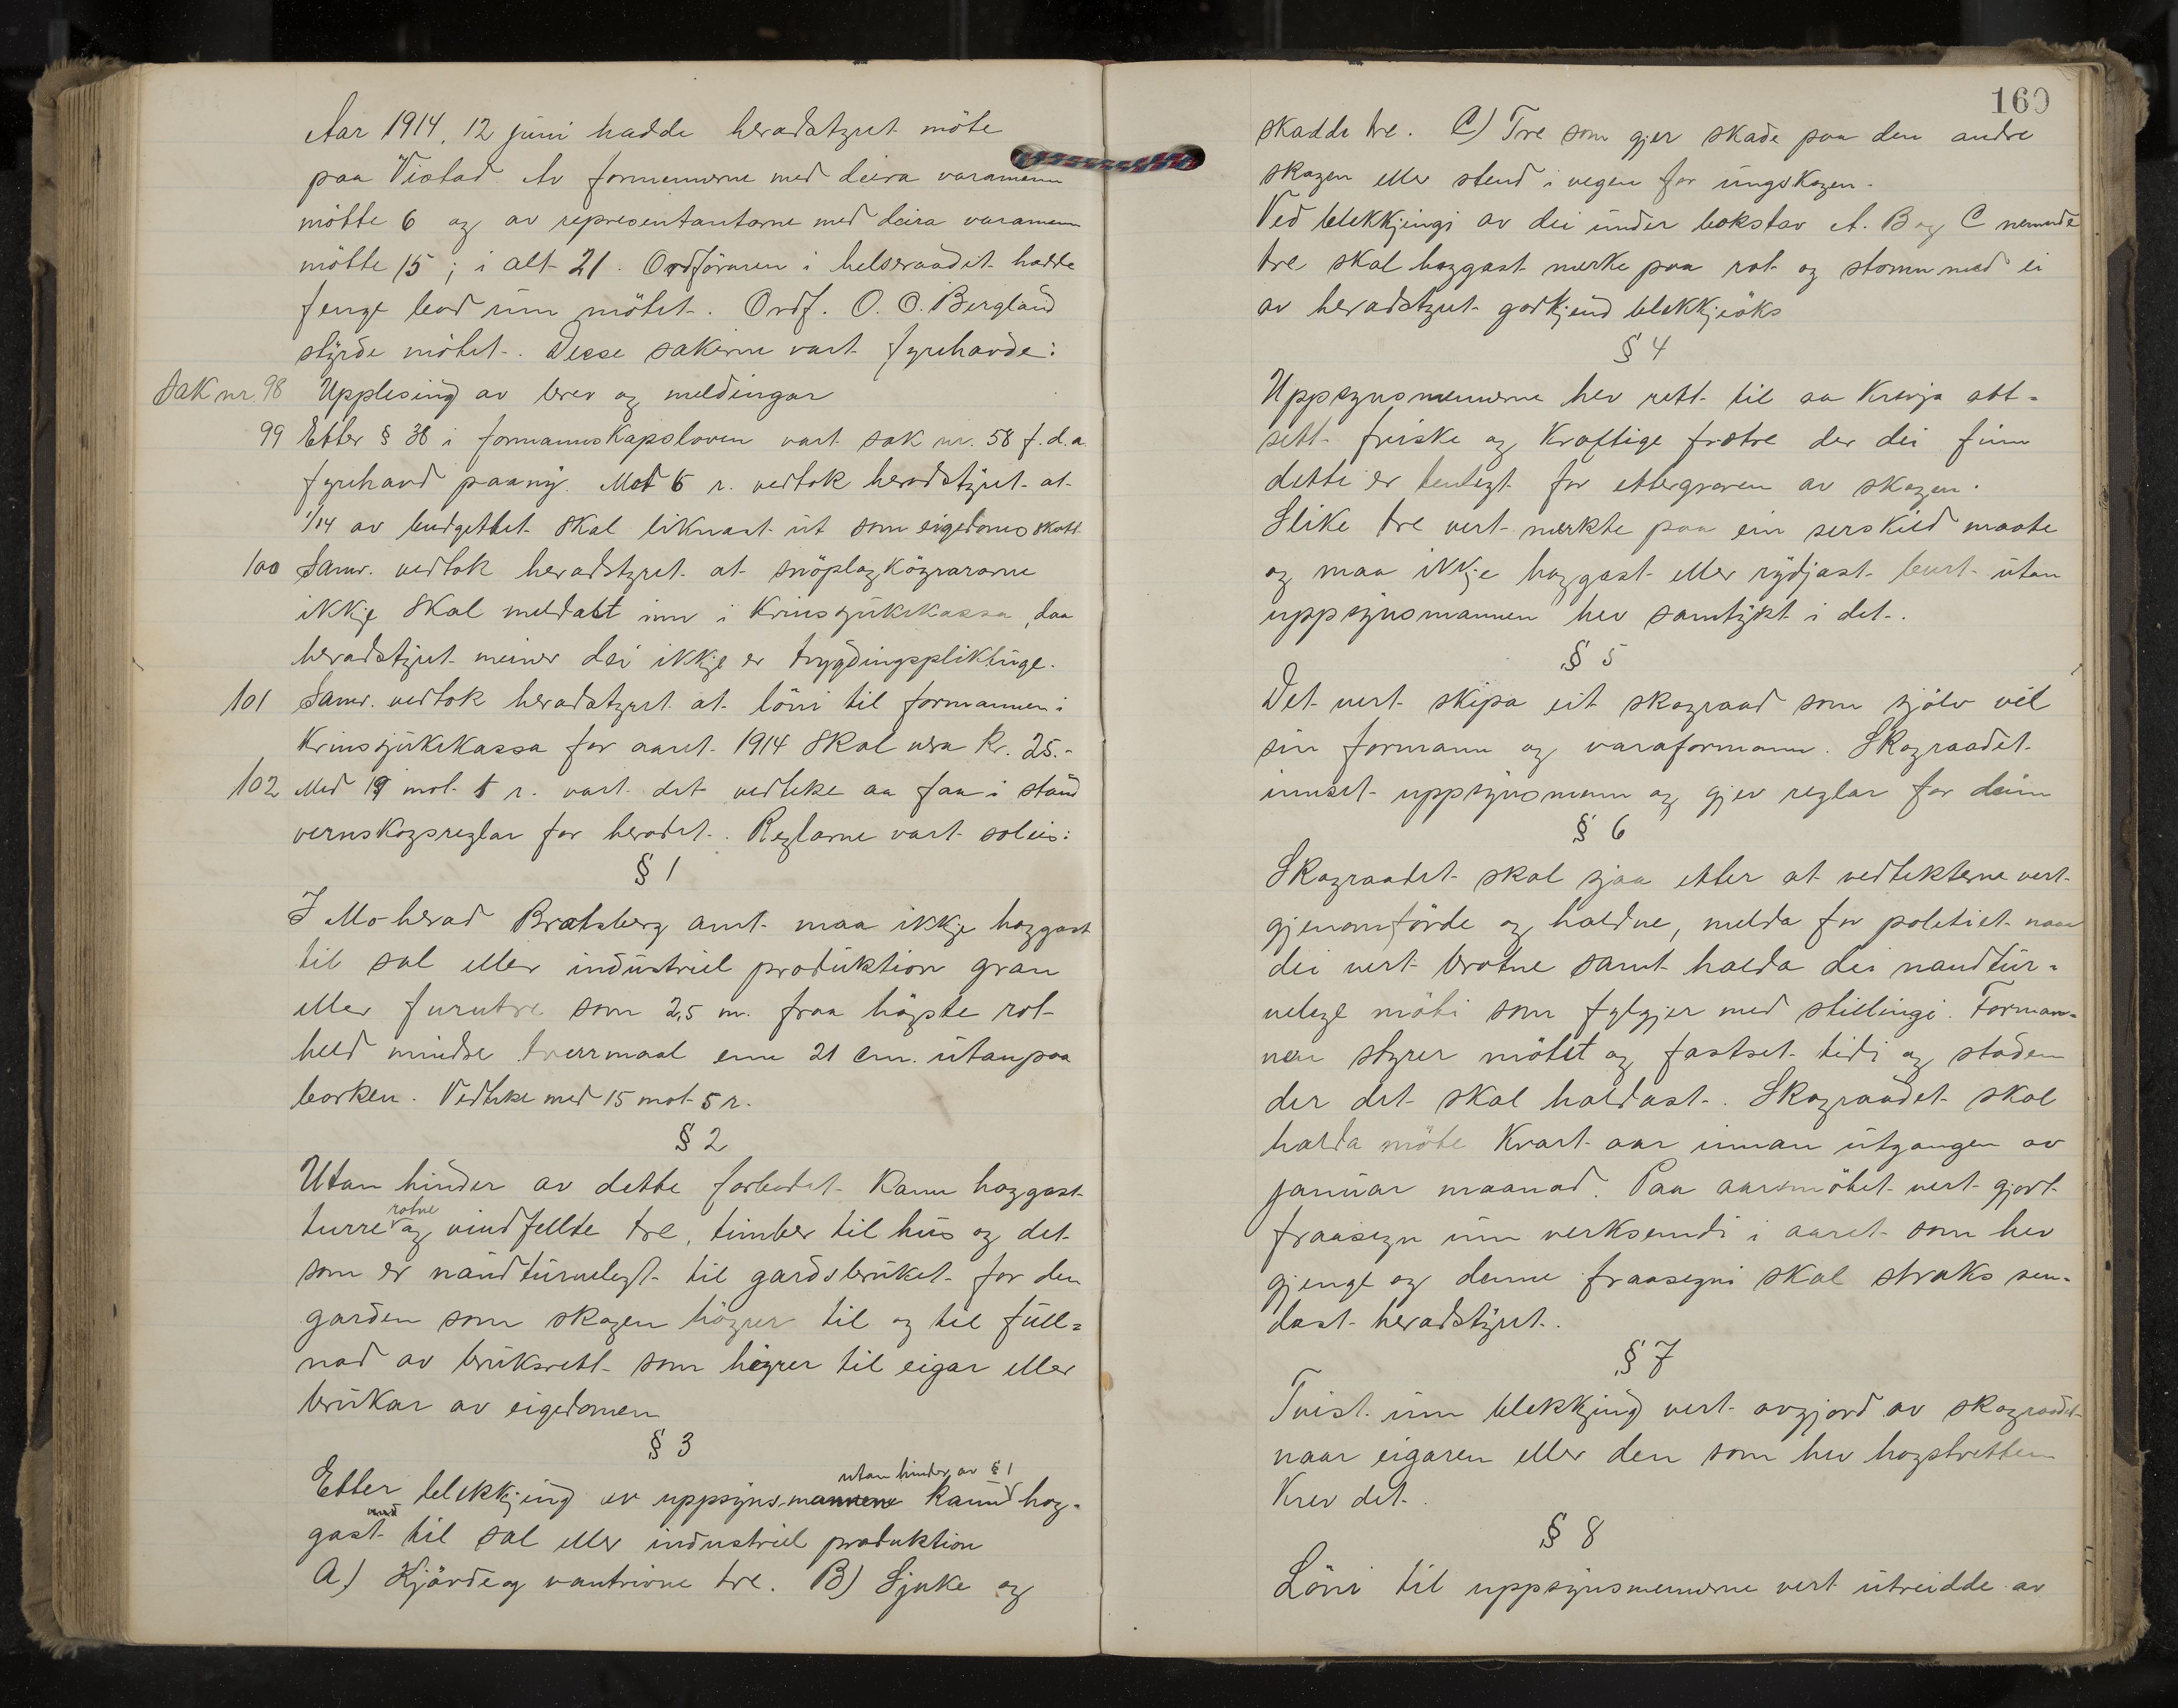 Aar 1914. 12 juni hadde heradstyret möte
paa Vistad. Av formennerne med deira varamenn
mötte 6 og av representantarne med deira varamenn
mötte 15; i alt 21. Ordföraren i helseraadet hadde
fenge bod um mötet. Ordf. O. O. Bergland
styrde mötet. Desse sakerne vart fyrehavde:
Sak nr. 98 Upplesing av brev og meldingar
99 Etter § 38 i formannskapsloven vart sak nr. 58 f.d.a.
fyrehavd paany. Med 6 r. vedtok heradstyret at
1/14 av budgettet skal liknast ut som eigedomsskatt
100 Samr. vedtok heradstyret at snöplogköyrararne
ikkje skal meldast inn i Krinssjukekassa, daa
heradstyret meiner dei ikkje er trygdingspliktuge.
101 Samr. vedtok heradstyret at löni til formannen i
Krinssjukekassa for aaret 1914 skal vera kr. 25.-
102 Med 19 mot 1 r. vart det vedteke aa faa i stand
vernskogsreglar for heradet. Reglarne vart soleis:
§ 1
I Mo herad Bratsberg amt maa ikkje hoggast
til sal eller industriel produktion gran
eller furutre som 2,5 m. fraa högste rot
held mindre tverrmaal enn 21 cm. utanpaa
borken. Vedteke med 15 mot 5 r.
§ 2
Utan hinder av dette forbodet kann hoggast
turre rotne og vindfellte tre, timber til hus og det
som er naudturvelegt til gardsbruket for den
garden som skogen höyrer til og til full=
nad av bruksrett som höyrer til eigar eller
brukar av eigedomen
§ 3
utan hinder av § 1
Etter blekkjing av uppsynsmannen kann hog-
gast til sal eller industriel produktion
A) Kjörde og vantrivne tre. B) Sjuke og
160
skadde tre. C) Tre som gjer skade paa den andre
skogen eller stend i vegen for ungskogen.
Ved blekkjingi av dei under bokstav A. B og C nemnde
tre skal hoggast merke paa rot og stomn med ei
av heradstyret godkjend blekkjeöks
§ 4
Uppsynsmennerne hev rett til aa krevja att=
sett friske og kraftige frötre der dei finn
dette er tenlegt for ettergroren av skogen.
Slike tre vert merkte paa ein serskild maate
og maa ikkje hoggast eller rydjast burt utan
uppsynsmannen hev samtykt i det.
§ 5
Det vert skipa eit skograad som sjölv vel
sin formann og varaformann. Skograadet
innset uppsynsmenn og gjev reglar for deim
§ 6
Skograadet skal sjaa etter at vedtekterne vert
gjenomförde og haldne, melda for politiet naar
dei vert brotne samt halda dei naudtur=
velege möti som fylgjer med stillingi. Forman=
nen styrer mötet og fastset tidi og staden
der det skal haldast. Skograadet skal
halda möte kvart aar innan utgangen av
januar maanad. Paa aarsmötet vert gjort
fraasegn um verksemdi i aaret som hev
gjenge og denne fraasegni skal straks sen=
dast heradstyret.
§ 7
Tvist um blekkjing vert avgjord av skograadet
naar eigaren eller den som hev hogstretten
krev det.
§ 8
Löni til uppsynsmennerne vert utreidde av